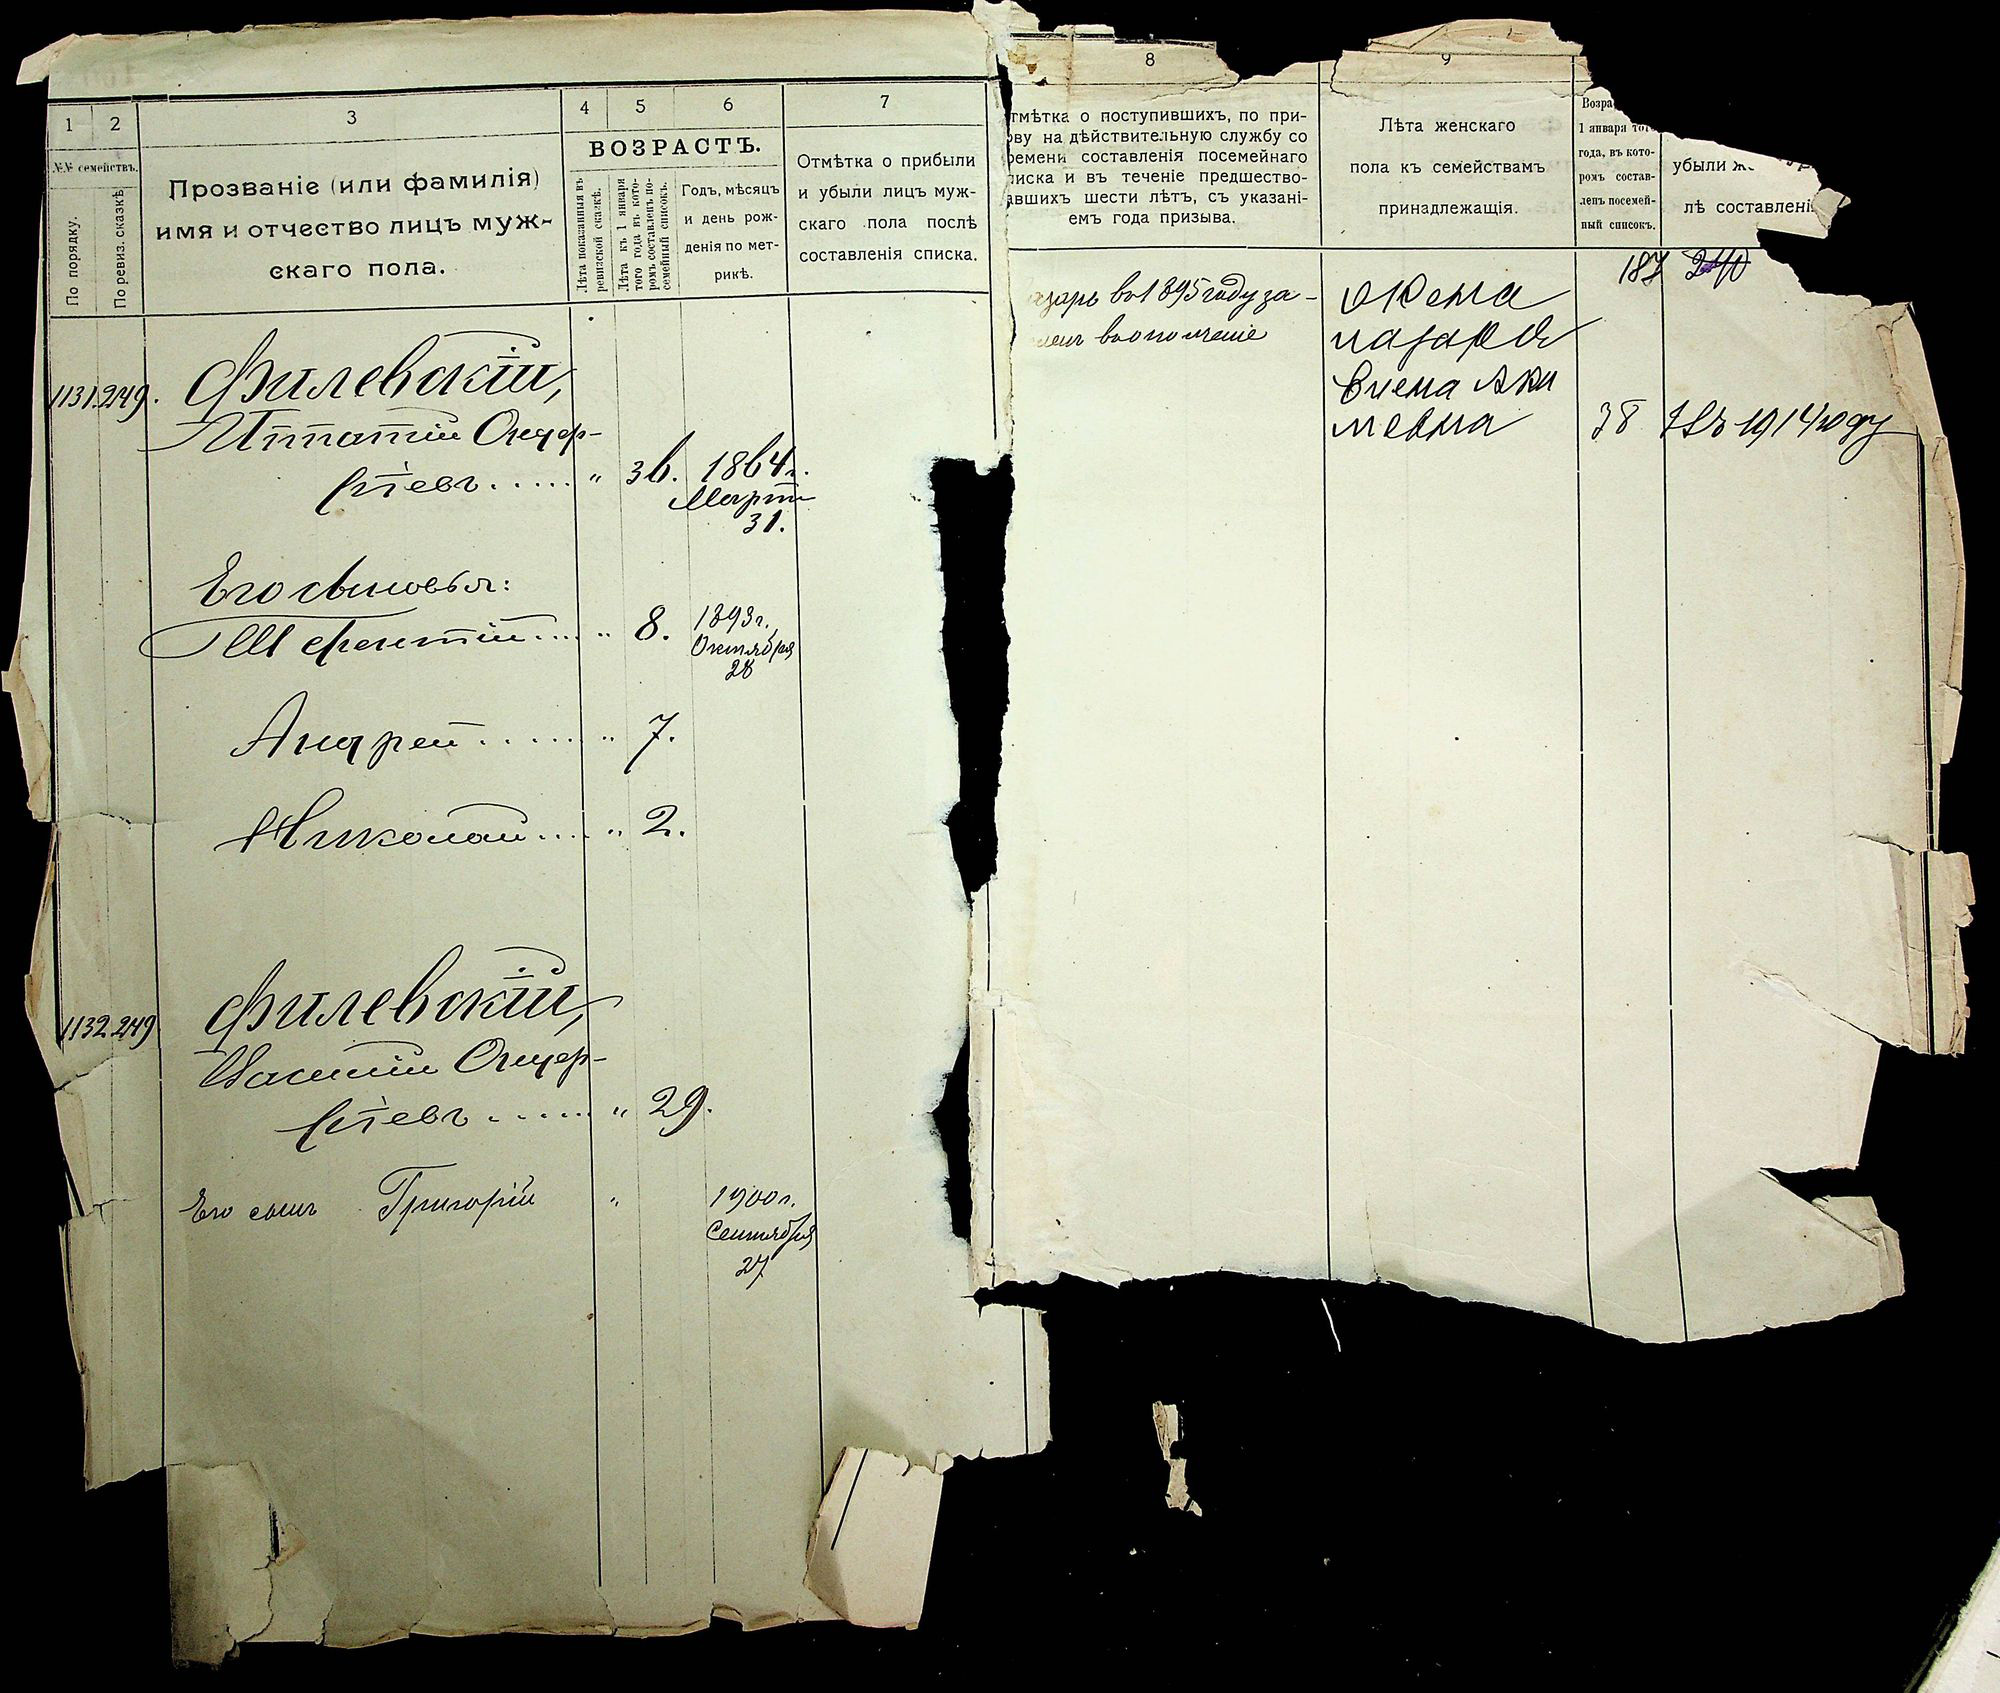 1 2 3 4 5 6 7
№№ семействъ.
По порядку.
По ревиз. сказкѣ
Прозваніе (или фамилія)
имя и отчество лицъ муж-
скаго пола.
ВОЗРАСТЪ.
Лѣта показанныя въ
ревизской сказкѣ.
Лѣта къ 1 января
того года въ кото-
ромъ составленъ по-
семейный списокъ.
Годъ, мѣсяцъ
и день рож-
денія по мет-
рикѣ.
Отмѣтка о прибыли
и убыли лицъ муж-
скаго пола послѣ
составленія списка.
1131. 249. Филевскій,
Ипатій Ондер-
" 36. 1864 г.
Март
31.
Его сыновья:
" 8. 1893 г.
Октября
28
Андрей " 7.
Николай " 2.
1132 249 Филевскій,
Василій Ондер-
" 29.
Его сынъ Григорій " 1900 г.
Сентября
27
8 9
тмѣтка о поступившихъ, по при-
ву на дѣйствительную службу со
ремени составленія посемейнаго
писка и въ теченіе предшество-
авшихъ шести лѣтъ, съ указані-
емъ года призыва.
Лѣта женскаго
пола къ семействамъ
принадлежащія.
Возра
1 января того
года, въ кото-
ромъ состав-
ленъ посемей-
ный списокъ.
убыли ж
лѣ составлені
187 240
азарь въ 1895 году за-
въ ополченіе
Жена
Лазаря
Аки
мевна 38 въ 1914 году